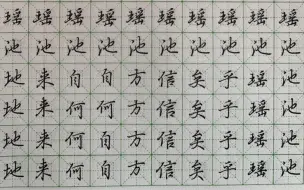 瑶 瑶 瑶 瑶 瑶 瑶 瑶 瑶 瑶 瑶
池 池 池 池 池 池 池 池 池 池
地 来 自 自 方 信 矣 乎 瑶 池
地 来 何 何 方 信 矣 乎 瑶 池
地 来 何 自 方 信 矣 乎 瑶 池
地 来 何 自 方 信 矣 乎 瑶 池